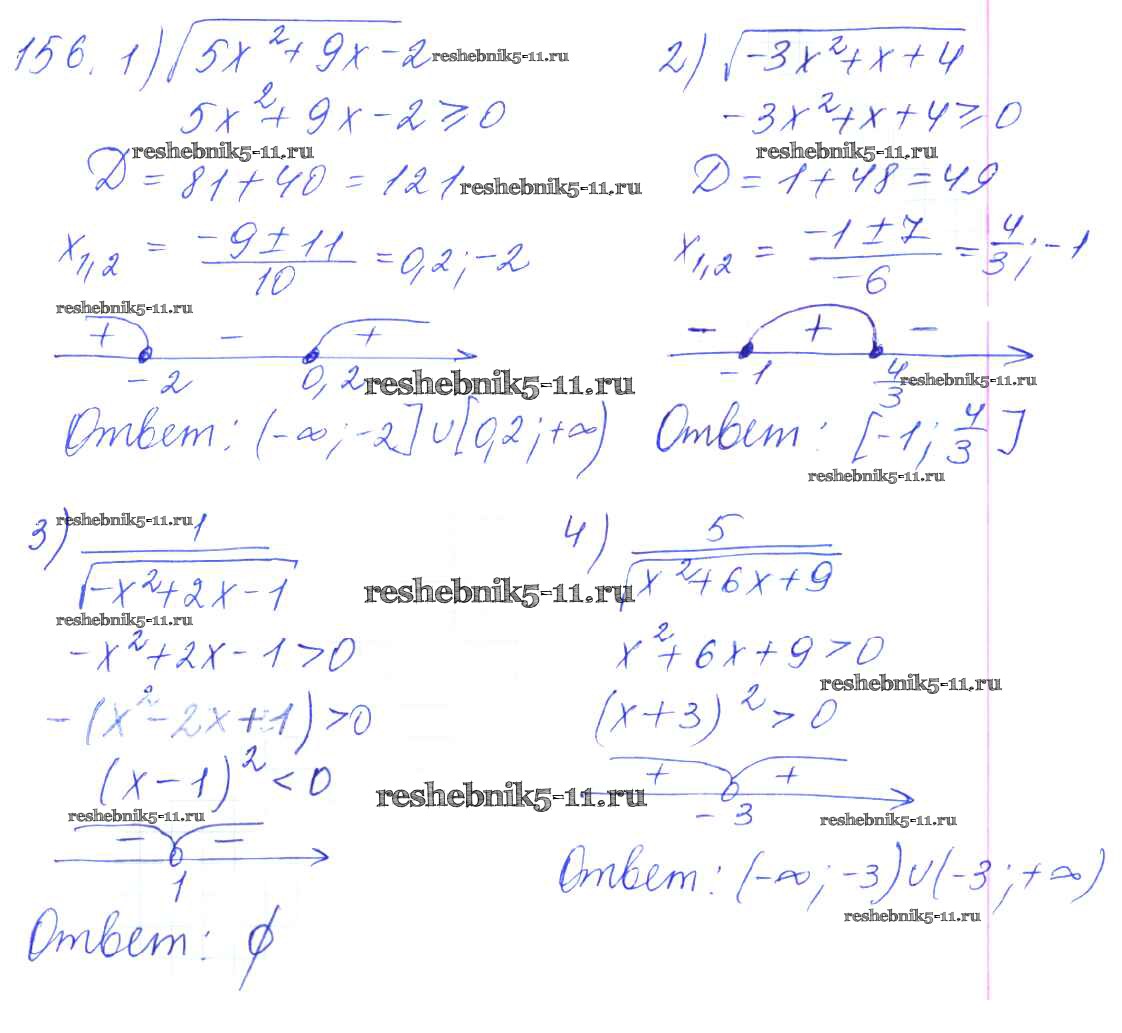 156. 1) √(5x² + 9x - 2) reshebnik5-11.ru
5x² + 9x - 2 ≥ 0
reshebnik5-11.ru
D = 81 + 40 = 121 reshebnik5-11.ru
x₁,₂ = (-9 ± 11)/10 = 0,2; -2
reshebnik5-11.ru
+ - +
-2 0,2 reshebnik5-11.ru
Ответ: (-∞; -2] ∪ [0,2; +∞)
2) √(-3x² + x + 4)
-3x² + x + 4 ≥ 0
reshebnik5-11.ru
D = 1 + 48 = 49
x₁,₂ = (-1 ± 7)/-6 = 4/3; -1
- + -
-1 4/3 reshebnik5-11.ru
Ответ: [-1; 4/3]
reshebnik5-11.ru
reshebnik5-11.ru
3) 1/√(-x² + 2x - 1)
reshebnik5-11.ru
reshebnik5-11.ru
-x² + 2x - 1 > 0
-(x² - 2x + 1) > 0
(x - 1)² < 0
reshebnik5-11.ru
reshebnik5-11.ru
- -
1
Ответ: ∅
4) 5/√(x² + 6x + 9)
x² + 6x + 9 > 0
reshebnik5-11.ru
(x + 3)² > 0
+ +
-3 reshebnik5-11.ru
Ответ: (-∞; -3) ∪ (-3; +∞)
reshebnik5-11.ru